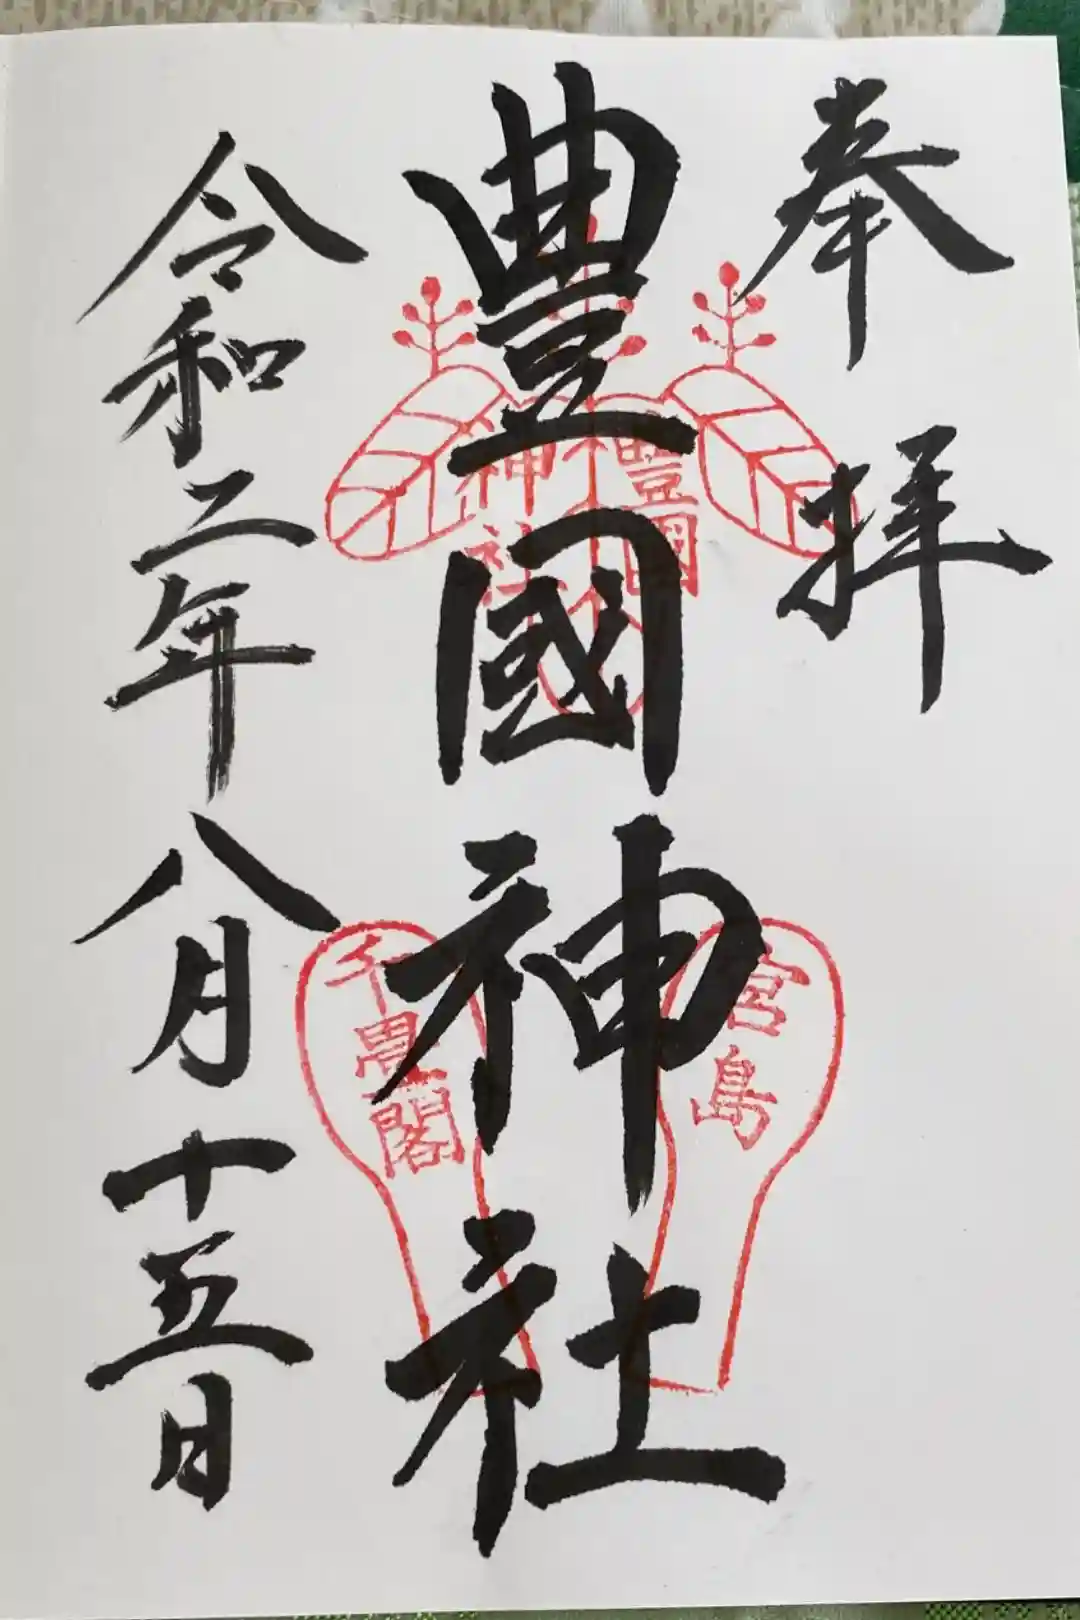 奉拝
豊國神社
令和二年八月十五日
豐國
神社
宮島
千畳閣